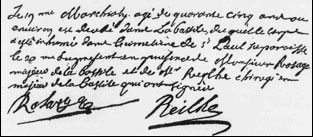 Le 19me Marchioly, agé de quarante cinq ans ou
environ est decedé dans La bastille, duquel le corps
a esté inhumé dans le cimetiere de St Paul sa paroisse
le 20me du present en presence de Monsieur Rosage
majeur de la bastille et de Mr Reglhe chirugien
majeur de la bastille qui ont signez
Rosarges Reilhe